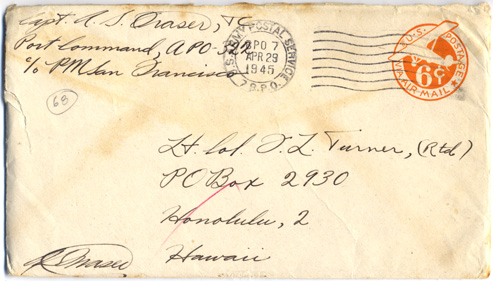 Capt. A. S. Fraser, TC
Port Command, APO 322
c/o PM San Francisco
U.S. ARMY POSTAL SERVICE
APO 7
APR 29
1945
A.P.O.
U.S. POSTAGE
6¢
VIA AIR MAIL
68
Lt. Col. T. L. Turner, (Rtd)
PO Box 2930
Honolulu, 2
Hawaii
Fraser